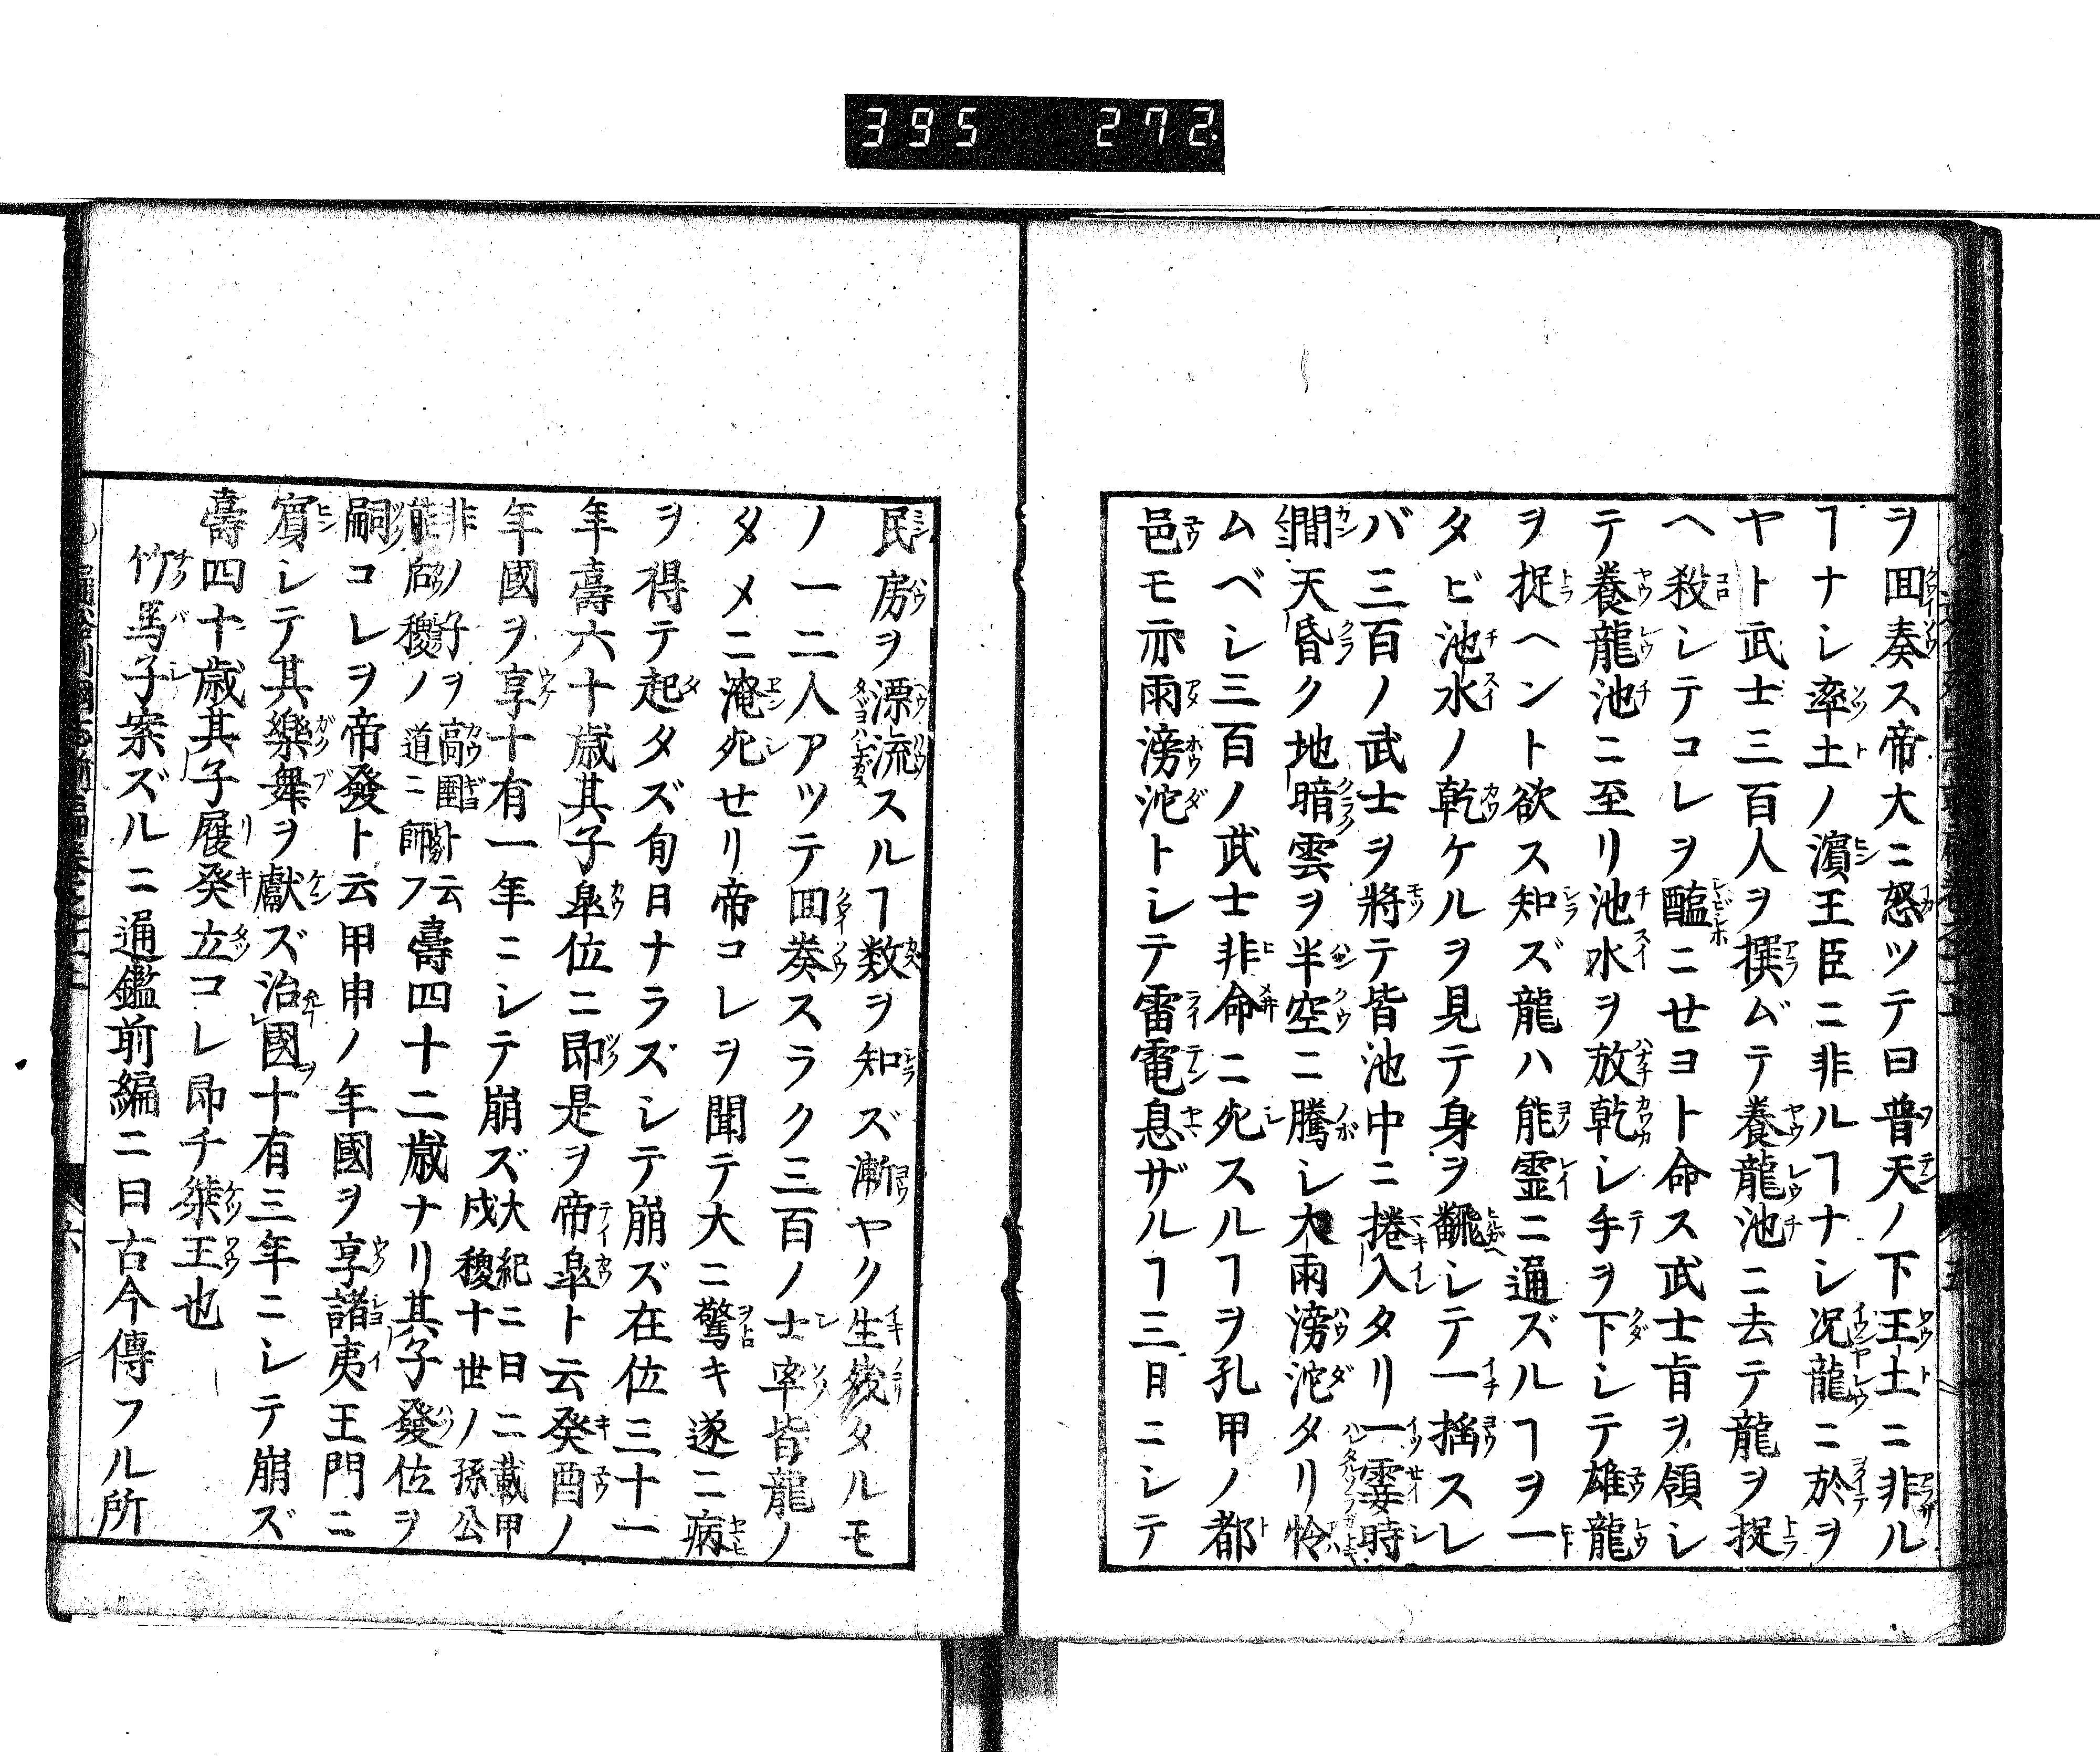 395 272
ヲ回奏ス帝大ニ怒ツテ曰普天ノ下王土ニ非ル
ヿナシ率土ノ濱王臣ニ非ルヿナシ况龍ニ於ヲ
ヤト武士三百人ヲ撰ムデ養龍池ニ去テ龍ヲ捉
ヘ殺シテコレヲ醢ニせヨト命ス武士旨ヲ領シ
テ養龍池ニ至リ池水ヲ放乾シ手ヲ下シテ雄龍
ヲ捉ヘント欲ス知ズ龍ハ能霊ニ通ズルヿヲ一
タビ池水ノ乾ケルヲ見テ身ヲ飜シテ一搖スレ
バ三百ノ武士ヲ將テ皆池中ニ捲入タリ一霎時
間天昏ク地暗雲ヲ半空ニ騰シ大雨滂沱タリ怜
ムベシ三百ノ武士非命ニ死スルヿヲ孔甲ノ都
邑モ亦雨滂沱トシテ雷電息ザルヿ三日ニシテ
民房ヲ漂流スルヿ数ヲ知ズ漸ヤク生殘タルモ
ノ一二人アツテ回奏スラク三百ノ士卒皆龍ノ
タメニ淹死せリ帝コレヲ聞テ大ニ驚キ遂ニ病
ヲ得テ起タズ旬日ナラズシテ崩ズ在位三十一
年壽六十歳其子皐位ニ即是ヲ帝皐ト云癸酉ノ
年國ヲ享十有一年ニシテ崩ズ大紀ニ曰ニ載甲
戍稷十世ノ孫公
非ノ子ヲ高圉ト云
能后稷ノ道ニ師フ壽四十二歳ナリ其子發位ヲ
嗣コレヲ帝發ト云甲申ノ年國ヲ享諸夷王門ニ
賓シテ其樂舞ヲ獻ズ治國十有三年ニシテ崩ズ
壽四十歳其子履癸立コレ即チ桀王也
竹馬子案ズルニ通鑑前編ニ曰古今傳フル所
六